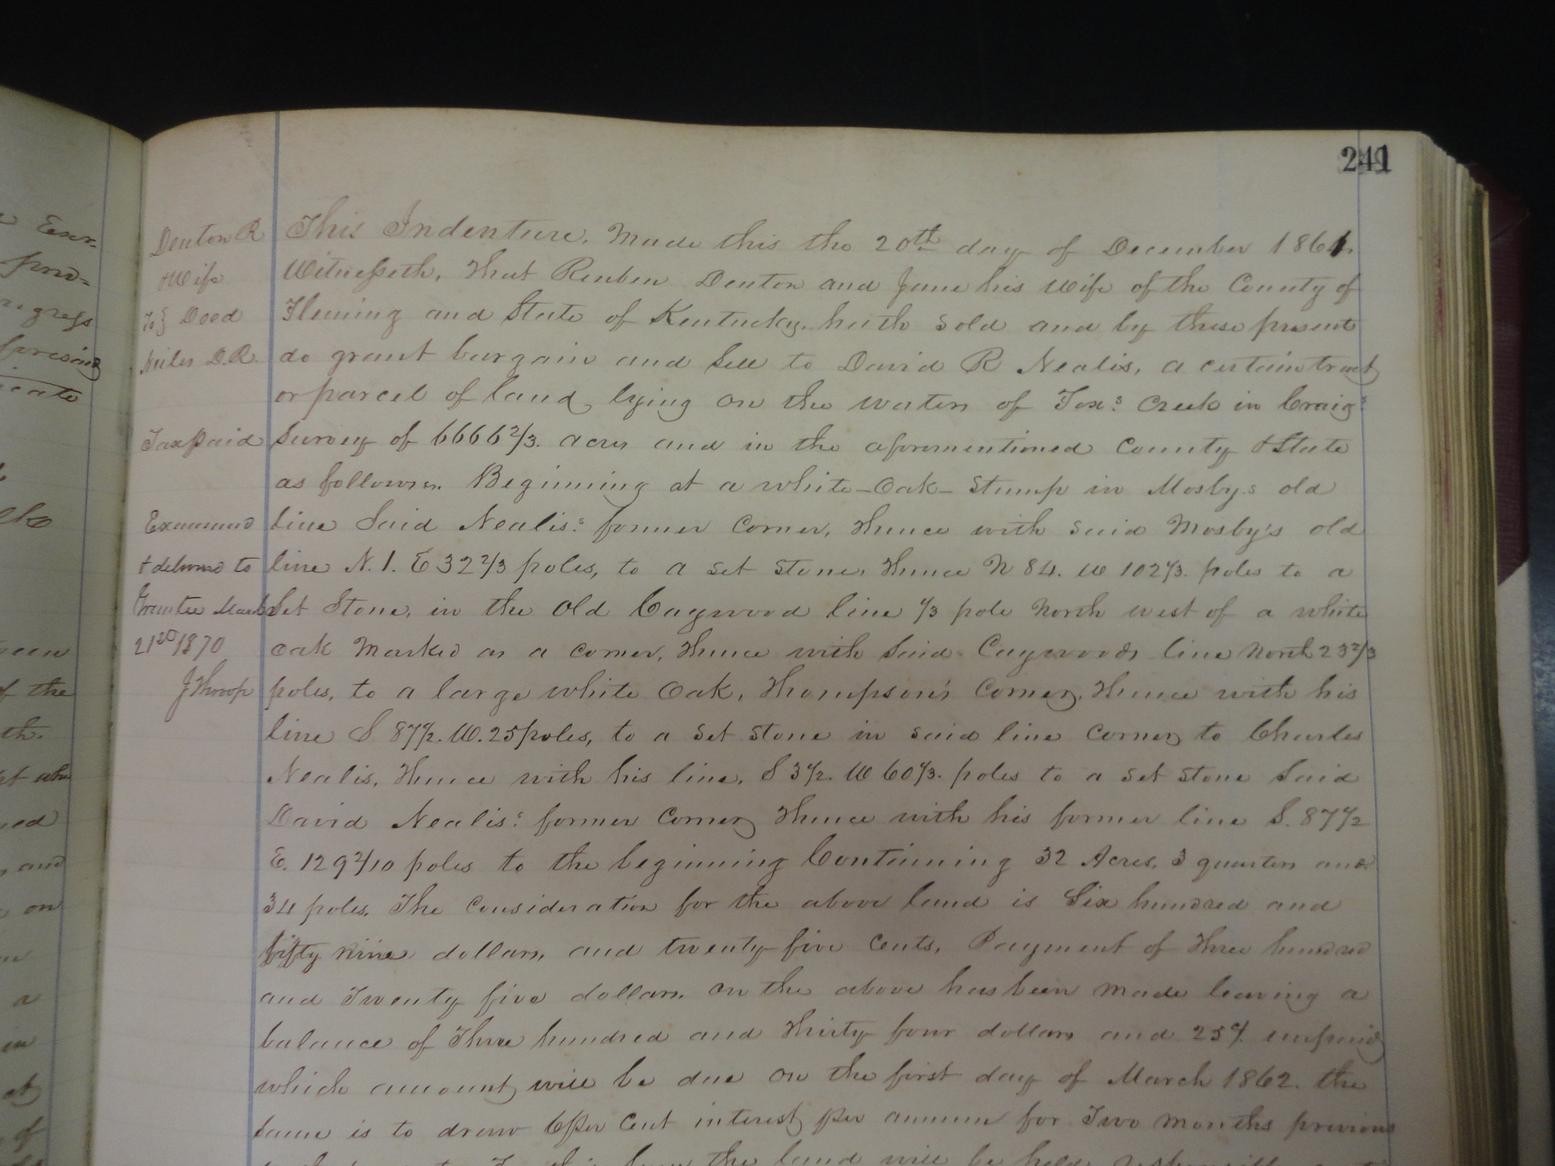 241
Denton R
& Wife
To } Deed
Tax paid
Examined
& delivered to
Grantee March
21st 1870
J Throop
This Indenture, Made this the 20th day of December 1861.
Witnesseth, That Reuben Denton and Jane his Wife of the County of
Fleming and State of Kentucky. hath sold and by these present
do grant bargain and Sell to David R Nealis, a certain tract
or parcel of land, lying on the waters of Fox's Creek in Craig's
Survey of 6666 2/3. acres and in the aforementioned County & State
as follows. Beginning at a white-Oak-Stump in Mosby's old
line Said Nealis's former Corner, thence with said Mosby's old
line N. 1. E 32 2/3 poles, to a set stone, thence N 84. W 102 1/3. poles to a
Set Stone, in the Old Caywood line 1/3 pole North west of a white
oak Marked as a corner, thence with Said Caywoods line North 23 2/3
poles, to a large white Oak, Thompson's Corner, thence with his
line S 87 1/2. W. 25 poles, to a Set Stone in said line corner to Charles
Nealis, thence with his line, S 3 1/2. W 60 1/3. poles to a set stone Said
David Nealis's former Corner thence with his former line S. 87 1/2
E. 129 2/10 poles to the beginning Containing 32 Acres, 3 quarters and
34 poles, The Consideration for the above land is Six hundred and
fifty nine dollars, and twenty five cents, Payment of Three hundred
and Twenty five dollars. on the above has been made leaving a
balance of Three hundred and thirty four dollars and 25 c/ unpaid
which amount will be due on the first day of March 1862. the
same is to draw 6 per Cent interest per annum for Two Months previous
the land will be held
een
of the
th.
ed
and
on
in
at
of